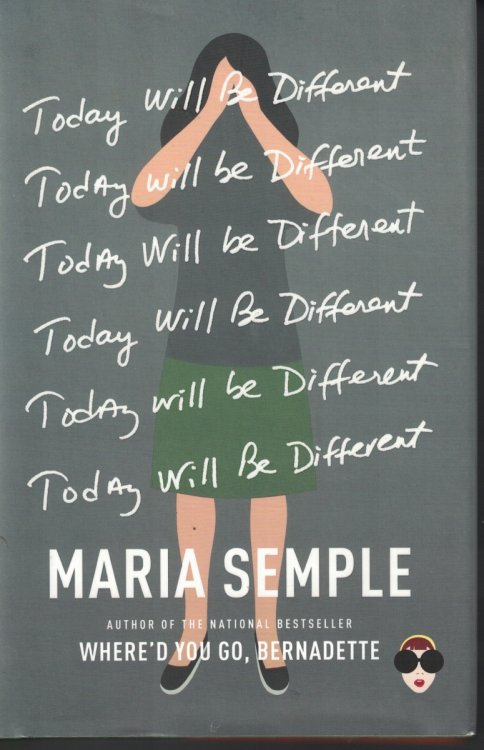 Today Will Be Different
TodAy will be Different
TodAy Will be Different
Today Will Be Different
TodAy will be Different
TodAy Will Be Different
MARIA SEMPLE
AUTHOR OF THE NATIONAL BESTSELLER
WHERE'D YOU GO, BERNADETTE